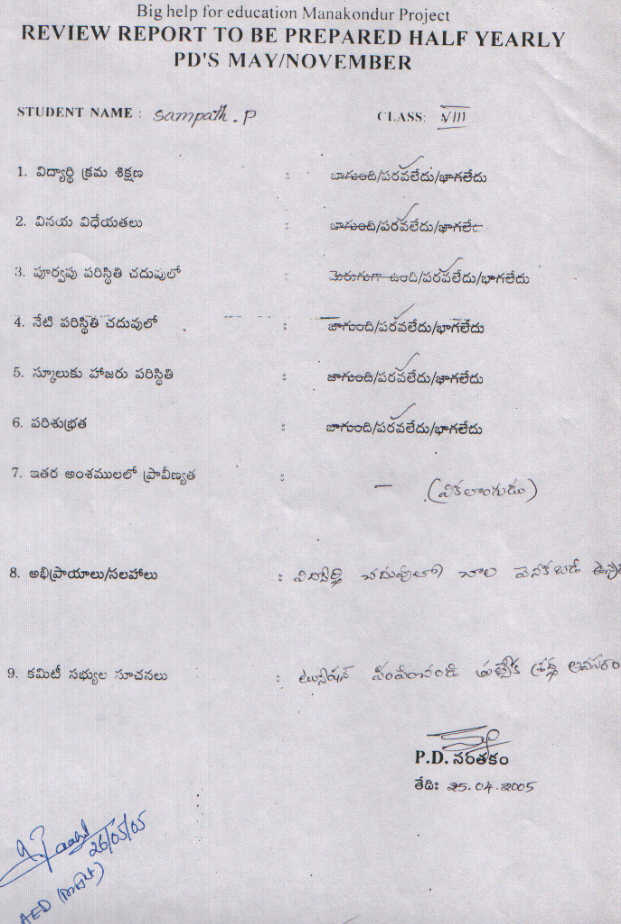 Big help for education Manakondur Project
REVIEW REPORT TO BE PREPARED HALF YEARLY
PD'S MAY/NOVEMBER
STUDENT NAME : Sampath . P CLASS: VIII
1. విద్యార్థి క్రమ శిక్షణ : బాగుంది/పరవలేదు/భాగలేదు
2. వినయ విధేయతలు : బాగుంది/పరవలేదు/భాగలేద
3. పూర్వపు పరిస్థితి చదువులో : మెరుగుగా ఉంది/పరవలేదు/భాగలేదు
4. నేటి పరిస్థితి చదువులో : బాగుంది/పరవలేదు/భాగలేదు
5. స్కూలుకు హాజరు పరిస్థితి : బాగుంది/పరవలేదు/భాగలేదు
6. పరిశుభ్రత : బాగుంది/పరవలేదు/భాగలేదు
7. ఇతర అంశములలో ప్రావీణ్యత : — (వికలాంగుడు)
8. అభిప్రాయాలు/సలహాలు : విద్యార్థి చదువులో చాల వెనకబడి
9. కమిటీ సభ్యుల సూచనలు : ట్యూషన్ శ్రద్ధ
P.D. సంతకం
తేది: 25.04.2005
26/05/05
AED